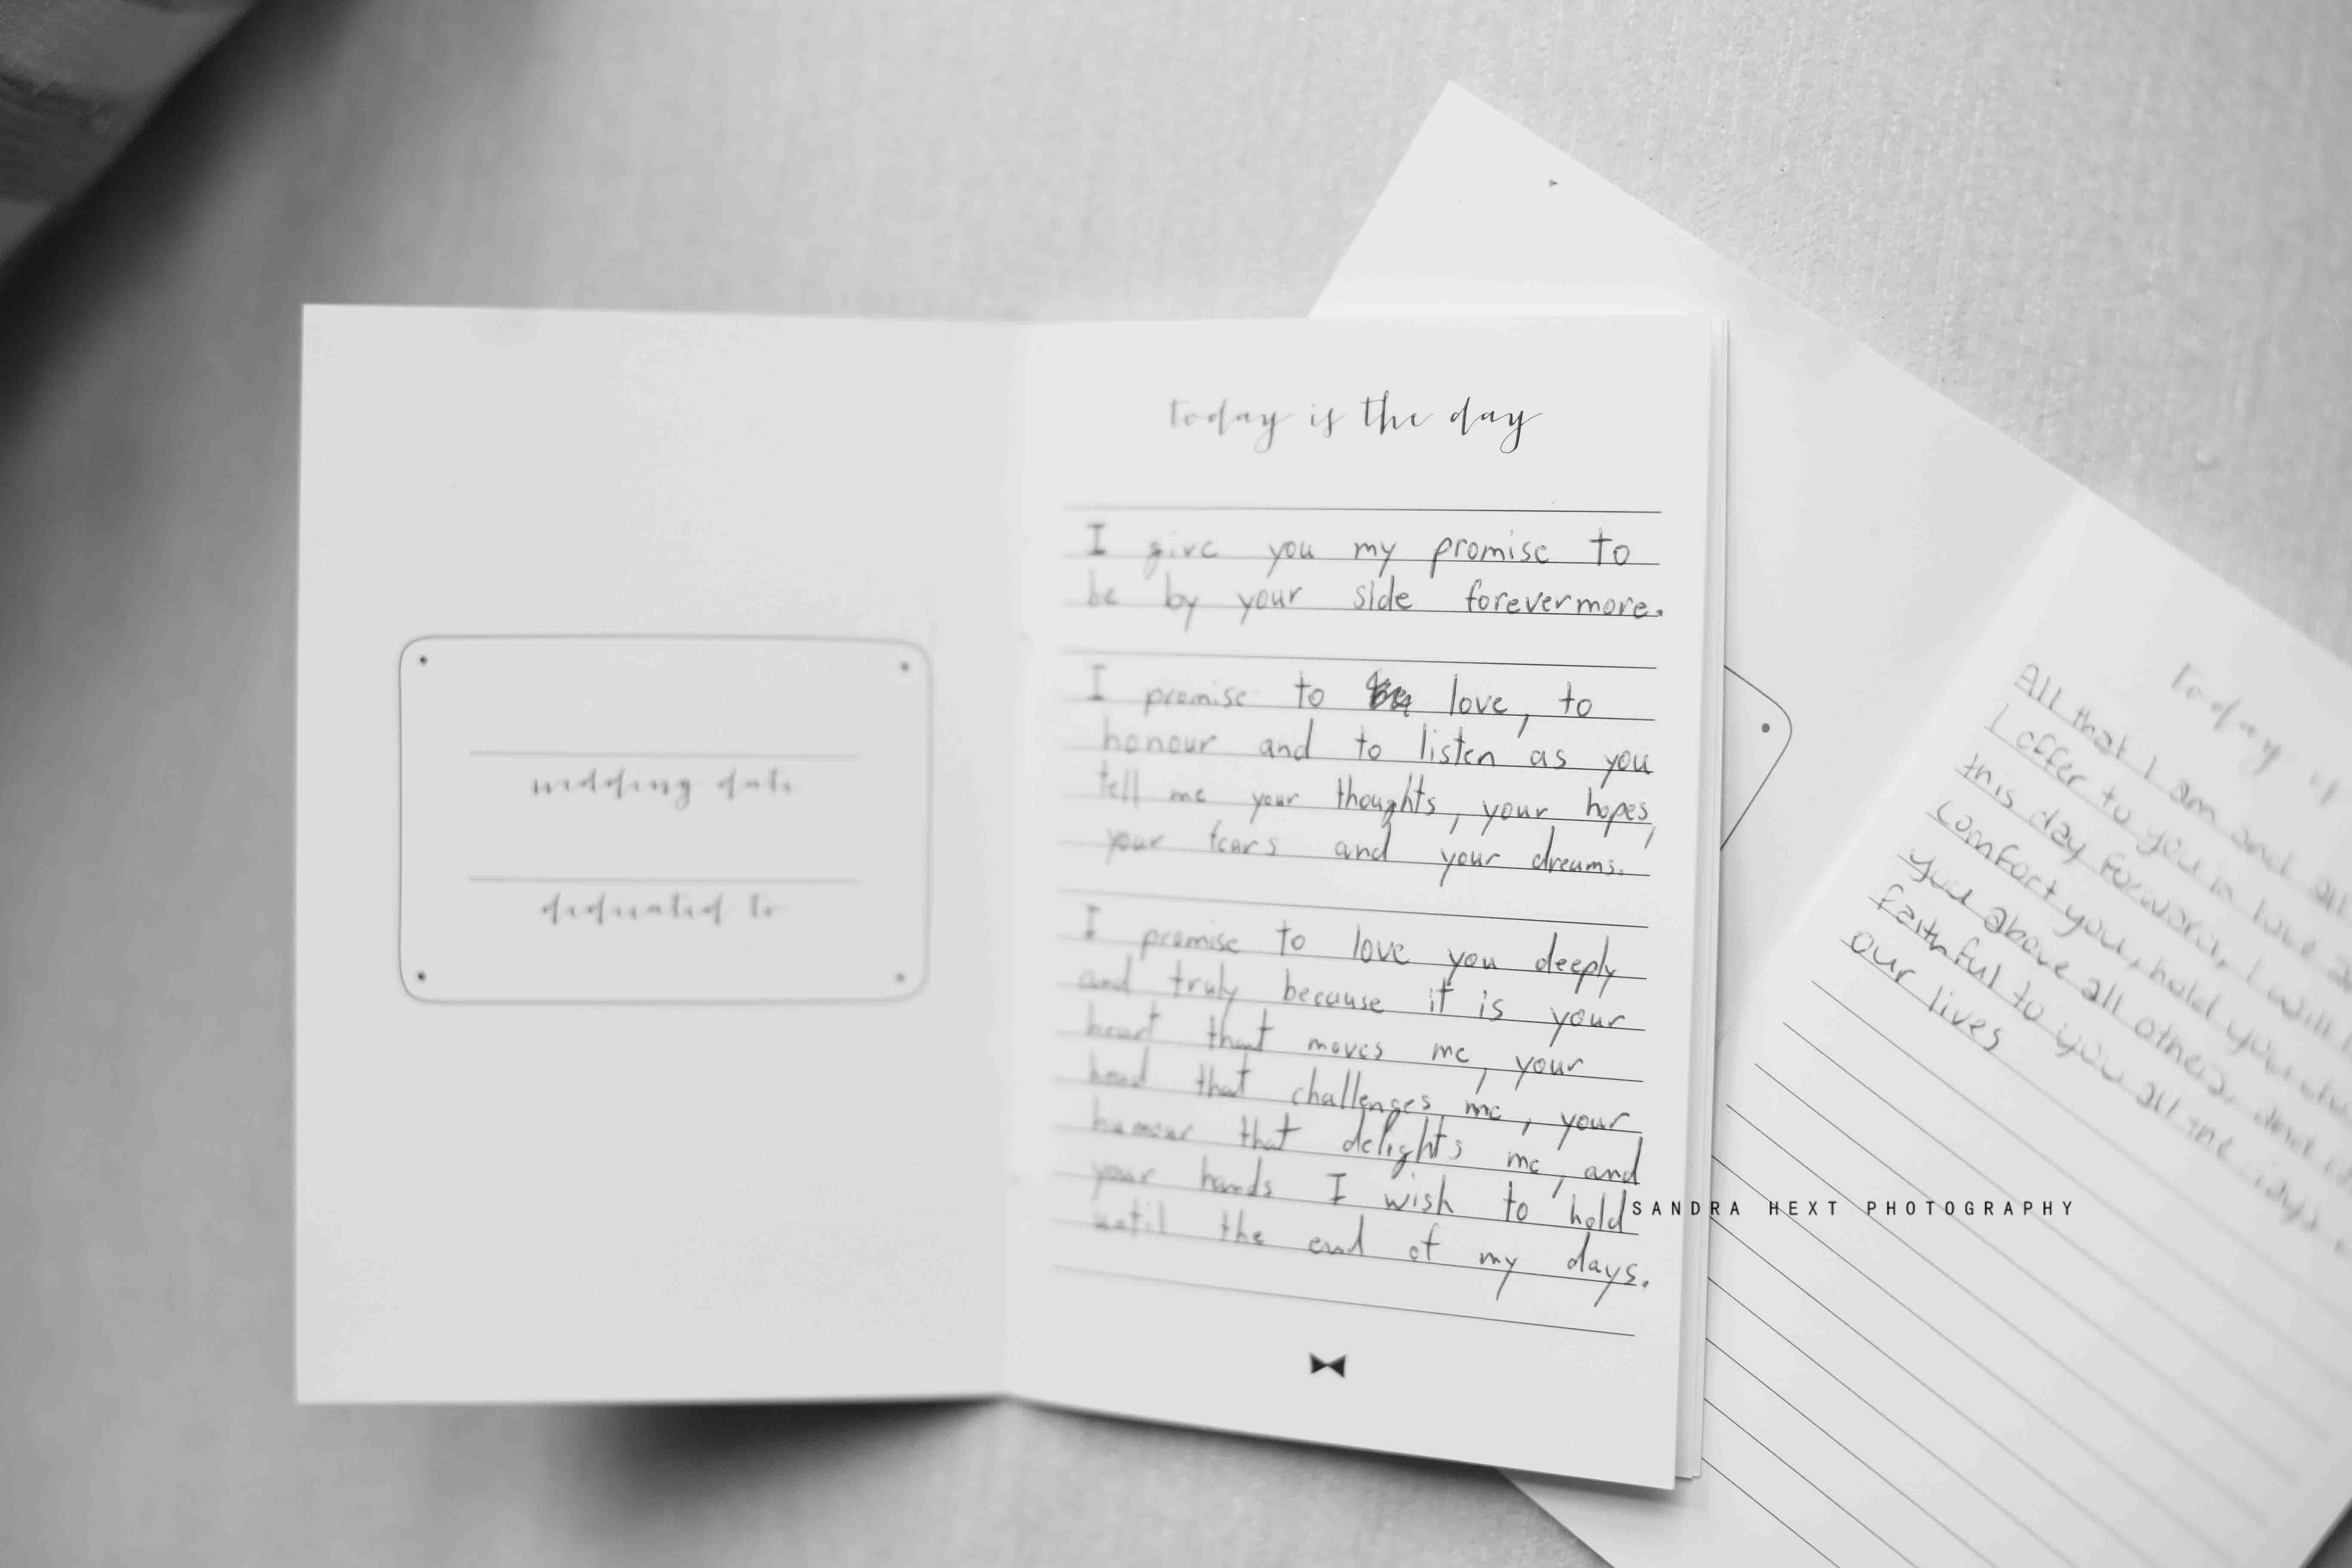 today is the day
I give you my promise to
be by your side forevermore.
I promise to love, to
honour and to listen as you
tell me your thoughts, your hopes,
your fears and your dreams.
I promise to love you deeply
and truly because it is your
heart that moves me, your
head that challenges me, your
humour that delights me, and
your hands I wish to hold
until the end of my days.
wedding date
dedicated to
today is
All that I am and all
I offer to you in love
this day forward, I will
comfort you, hold you
you above all others, and
faithful to you all the days
our lives
SANDRA HEXT PHOTOGRAPHY